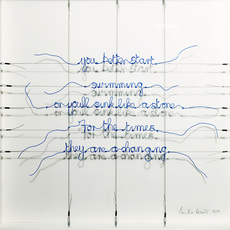 you better start
swimming
or you'll sink like a stone
For the times
they are a changing.